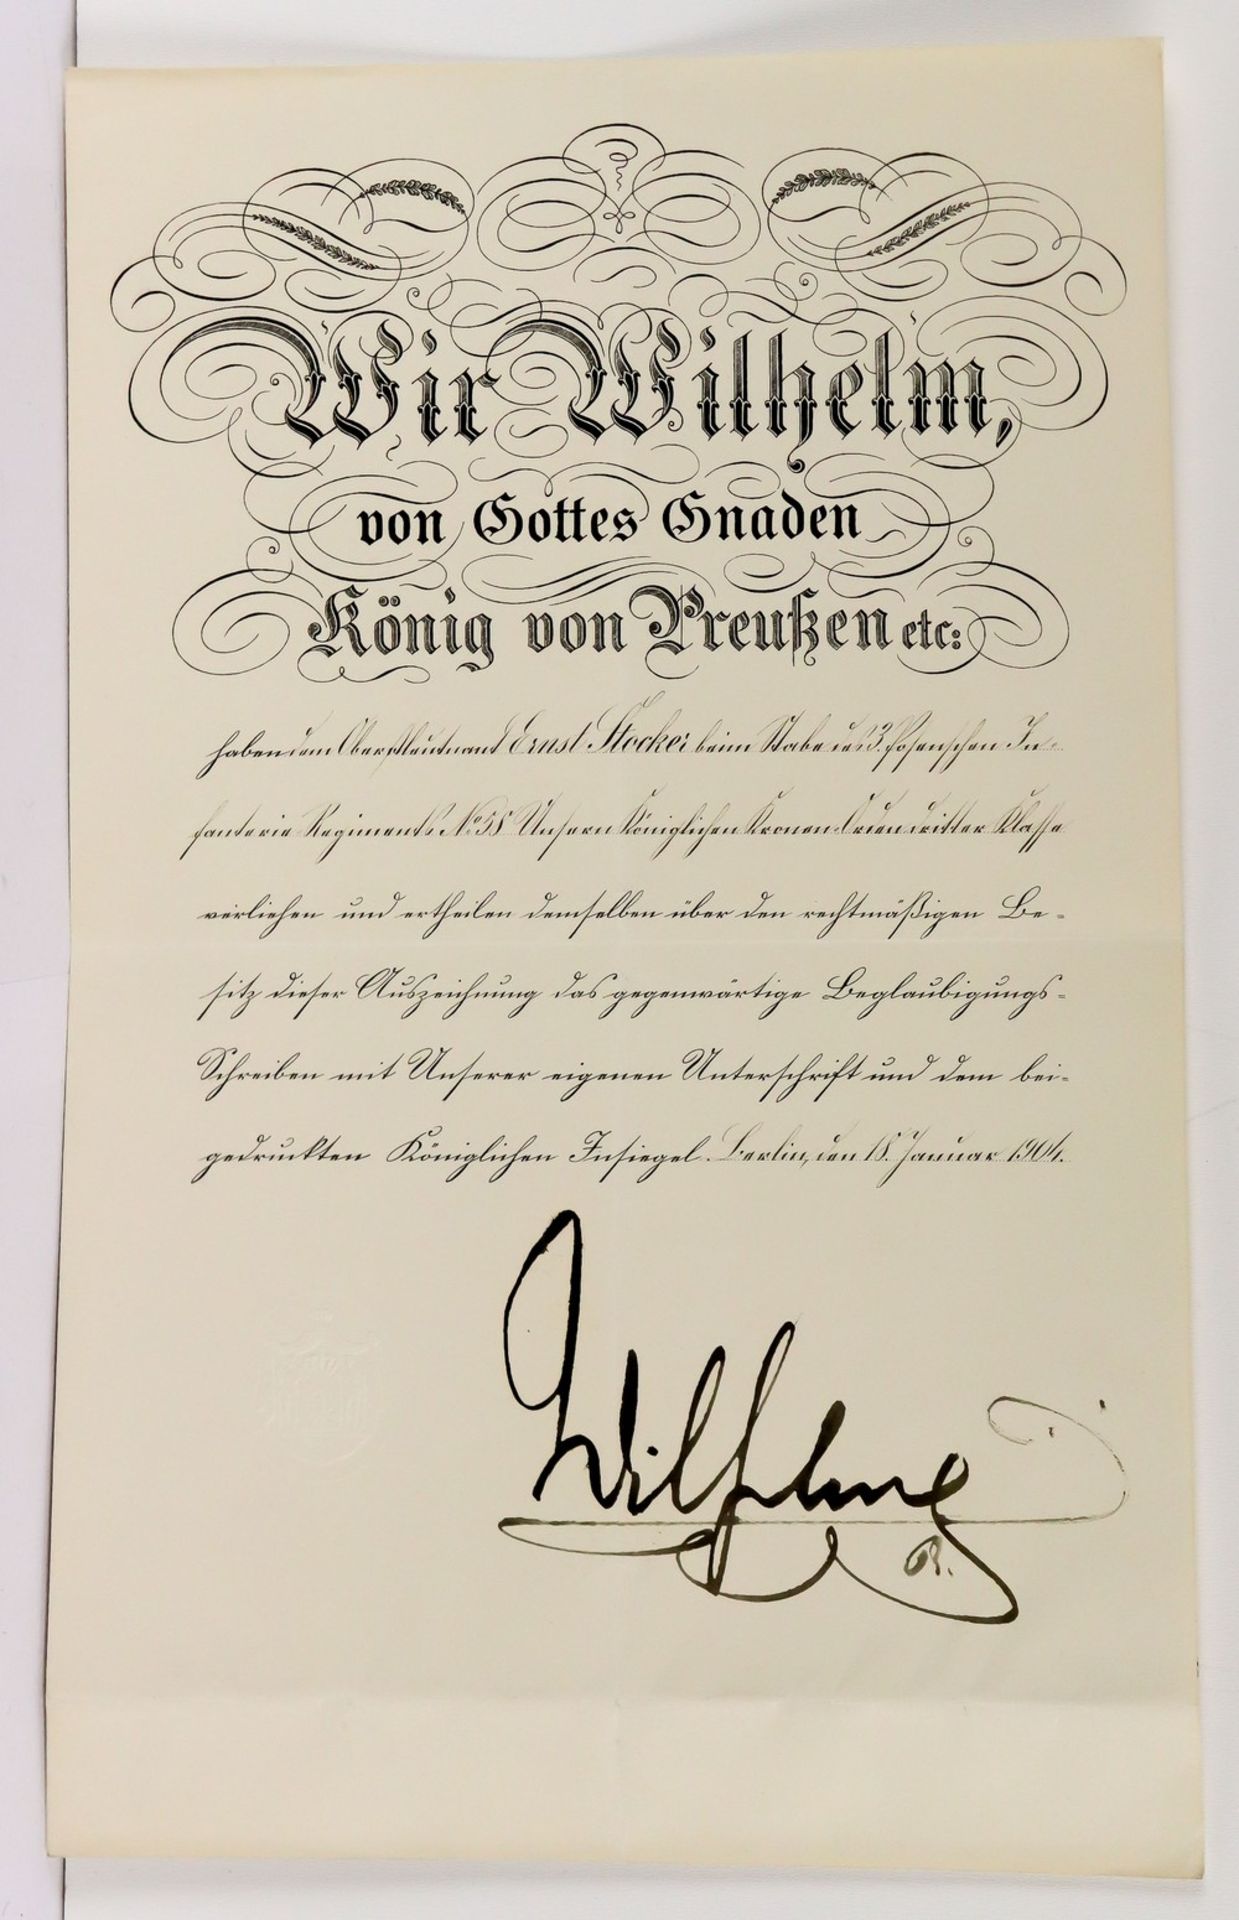 Wir Wilhelm,
von Gottes Gnaden
König von Preußen etc:
haben dem Oberstleutnant Ernst Stocker beim Stabe des 3. Posenschen In-
fanterie Regiments No 58 Unsern Königlichen Kronen-Orden dritter Klasse
verliehen und ertheilen demselben über den rechtmäßigen Be-
sitz dieser Auszeichnung das gegenwärtige Beglaubigungs-
Schreiben mit Unserer eigenen Unterschrift und dem bei-
gedruckten Königlichen Insiegel. Berlin, den 18. Januar 1904.
Wilhelm
R.